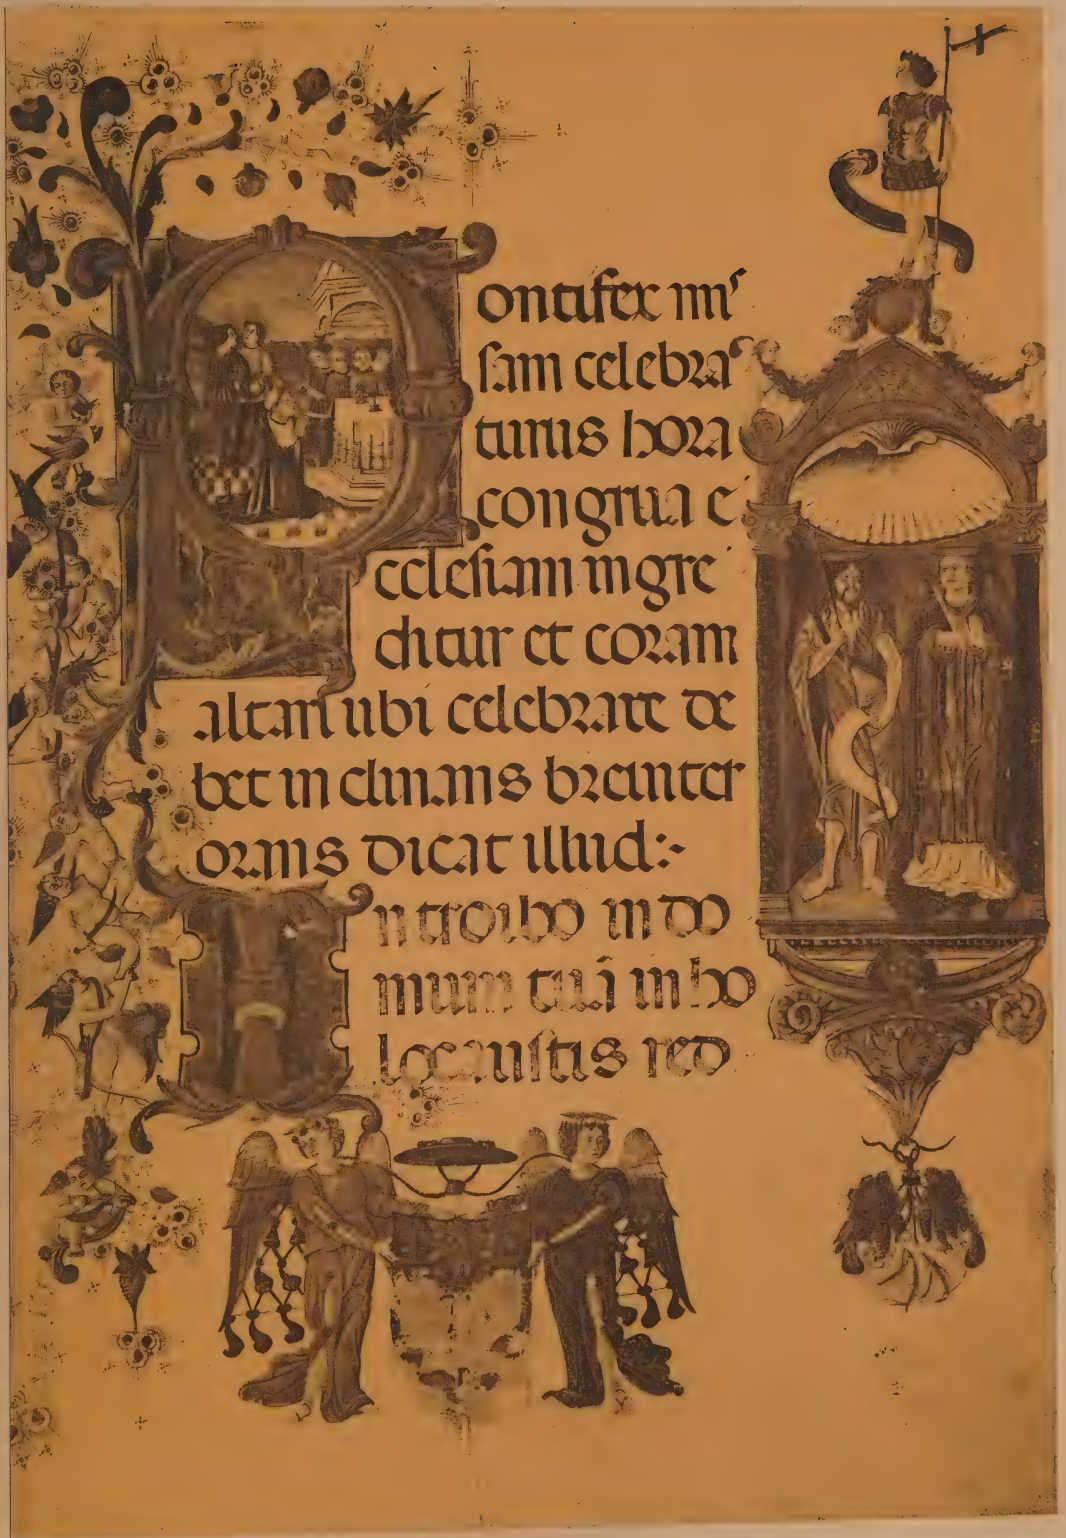 Pontifex miſ
ſam celebra
turus hora
congrua e
ccleſiam ingre
ditur et coram
altari ubi celebrare de
bet inclinans breuiter
orans dicat illud:~
Introibo in do
mum tuā in ho
locauſtis red